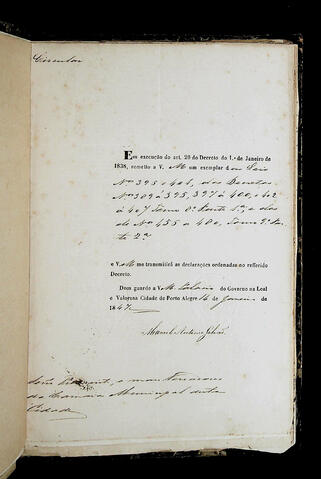 Circular
Em execução do art. 20 do Decreto do 1.º de Janeiro de
1838, remetto a V. M um exemplar
Nº 395 401, dos Decretos
Nº 309 á 395, 397 á 400, 402
á 407 Tomo Parte 1ª, e dos
de Nº 455 a 460, Tomo Par-
te 2ª
e V. M me transmittirá as declarações ordenadas no referido
Decreto.
Deos guarde a V. M. Palacio do Governo na Leal
e Valorosa Cidade de Porto Alegre 16 de Janeiro de
184
Manoel Antonio Galvão
Presidente, e mais Vereadores
da Camara Municipal desta
Cidade